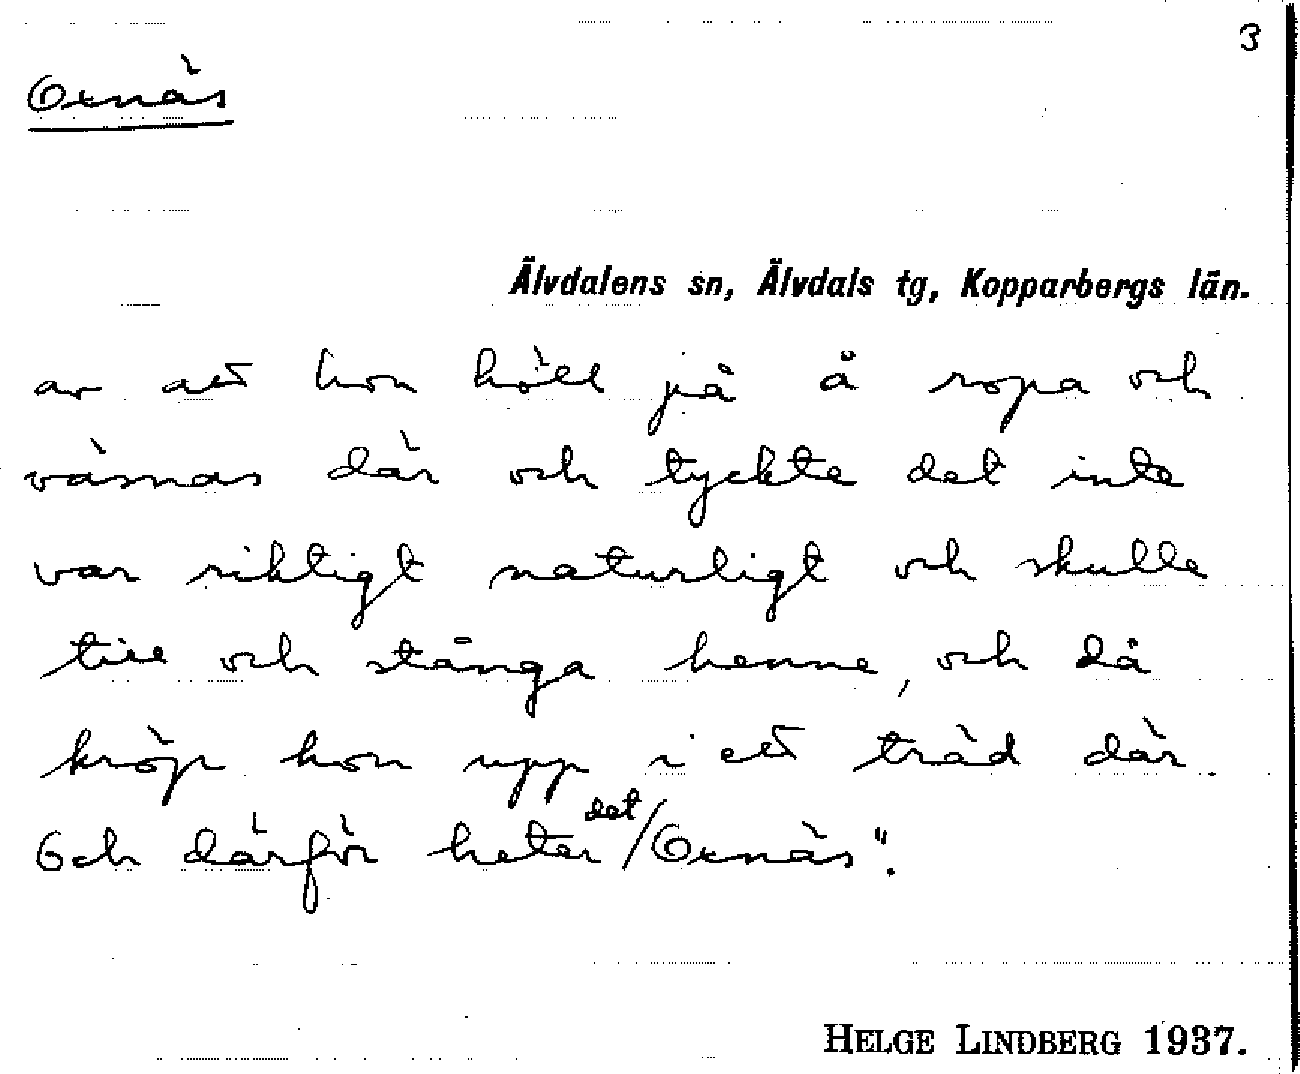 3
Oxnäs
Älvdalens sn, Älvdals tg, Kopparbergs län.
av att hon höll på å ropa och
väsnas där och tyckte det inte
var riktigt naturligt och skulle
till och stånga henne, och då
kröp hon upp i ett träd där.
Och därför heter det/Oxnäs".
HELGE LINDBERG 1937.